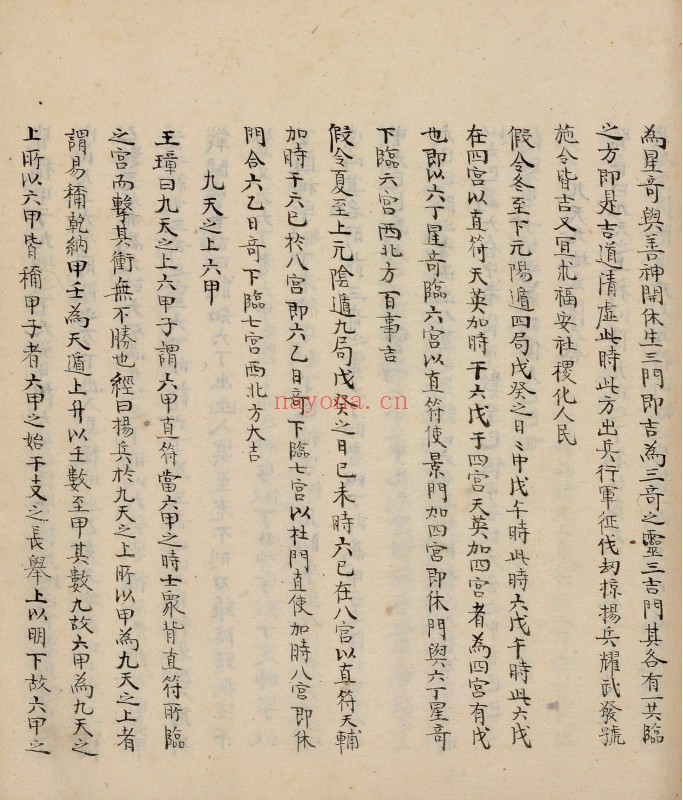 為星竒與善神開休生三門即吉為三竒之靈三吉門其各有一共臨
之方即是吉道清虛此時此方出兵行軍征伐刼掠揚兵耀武發號
施令皆吉又宜求福安社稷化人民
假令冬至下元陽遁四局戊癸之日〻中戊午時此時六戊午時此六戊
在四宮以直符天英加時干六戊于四宮天英加四宮者為四宮有戊
也即以六丁星竒臨六宮以直符使景門加四宮即休門與六丁星竒
下臨六宮西北方百事吉
假令夏至上元陰遁九局戊癸之日已未時六已在八宮以直符天輔
加時干六已於八宮即六乙日竒下臨七宮以杜門直使加時八宮即休
門合六乙日竒下臨七宮西北方大吉
九天之上六甲
王璋曰九天之上六甲子謂六甲直符當六甲之時士衆背直符所臨
之宮而擊其衝無不勝也經曰揚兵於九天之上所以甲為九天之上者
謂易稱乾納甲壬為天遁上升以壬數至甲其數九故六甲為九天之
上所以六甲皆稱甲子者六甲之始干支之長舉上以明下故六甲之
nayona.cn